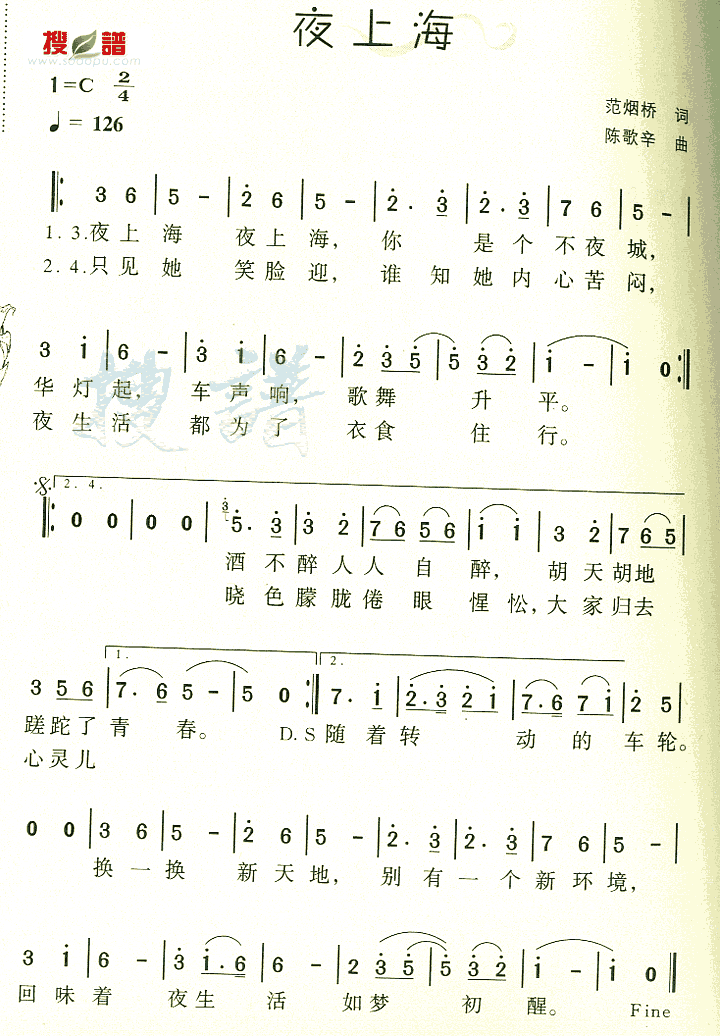 夜上海
搜谱
www.sooopu.com
1=C 2/4
♩= 126
范烟桥 词
陈歌辛 曲
3 6 | 5 - | 2 6 | 5 - | 2 . 3 | 2 . 3 | 7 6 | 5 - |
1.3.夜上海 夜上海, 你 是个不夜城,
2.4.只见她 笑脸迎, 谁知她内心苦闷,
3 1 | 6 - | 3 1 | 6 - | 2 3 5 | 5 3 2 | 1 - | 1 0 :|
华灯起, 车声响, 歌舞 升 平。
夜生活 都为了 衣食 住 行。
搜谱
2.4.
0 0 | 0 0 | 3 5 . 3 | 3 2 | 7 6 5 6 | 1 1 | 3 2 | 7 6 5 |
酒不醉人人自醉, 胡天胡地
晓色朦胧倦眼惺忪,大家归去
1. 2.
3 5 6 | 7 . 6 5 - | 5 0 :| 7 . 1 | 2 . 3 2 1 | 7 . 6 7 1 | 2 5 |
蹉跎了青春。 D.S 随着转 动的车轮。
心灵儿
0 0 | 3 6 | 5 - | 2 6 | 5 - | 2 . 3 | 2 . 3 | 7 6 | 5 - |
换一换 新天地, 别有一个新环境,
3 1 | 6 - | 3 1 . 6 | 6 - | 2 3 5 | 5 3 2 | 1 - | 1 0 ‖
回味着 夜生活 如梦 初 醒。 Fine